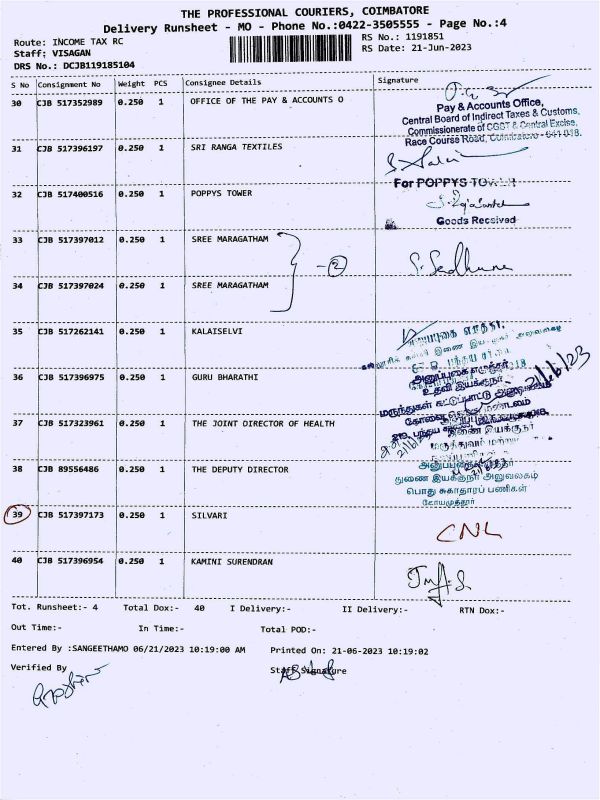 THE PROFESSIONAL COURIERS, COIMBATORE
Delivery Runsheet - MO - Phone No.:0422-3505555 - Page No.:4
Route: INCOME TAX RC
RS No.: 1191851
Staff: VISAGAN
RS Date: 21-Jun-2023
DRS No.: DCJB119185104
S No Consignment No Weight PCS Consignee Details Signature
30 CJB 517352989 0.250 1 OFFICE OF THE PAY & ACCOUNTS O
Pay & Accounts Office,
Central Board of Indirect Taxes & Customs,
Commissionerate of CGST & Central Excise,
Race Course Road, Coimbatore - 641 018.
31 CJB 517396197 0.250 1 SRI RANGA TEXTILES
For POPPYS TOWER
32 CJB 517400516 0.250 1 POPPYS TOWER
Goods Received
33 CJB 517397012 0.250 1 SREE MARAGATHAM
-2
34 CJB 517397024 0.250 1 SREE MARAGATHAM
35 CJB 517262141 0.250 1 KALAISELVI
36 CJB 517396975 0.250 1 GURU BHARATHI
உதவி இயக்குநர்
21/6/23
37 CJB 517323961 0.250 1 THE JOINT DIRECTOR OF HEALTH
இணை இயக்குநர்
38 CJB 89556486 0.250 1 THE DEPUTY DIRECTOR
துணை இயக்குநர் அலுவலகம்
பொது சுகாதாரப் பணிகள்
கோயமுத்தூர்
39 CJB 517397173 0.250 1 SILVARI
CNL
40 CJB 517396954 0.250 1 KAMINI SURENDRAN
Tot. Runsheet:- 4 Total Dox:- 40 I Delivery:- II Delivery:- RTN Dox:-
Out Time:- In Time:- Total POD:-
Entered By :SANGEETHAMO 06/21/2023 10:19:00 AM Printed On: 21-06-2023 10:19:02
Verified By
Staff Signature